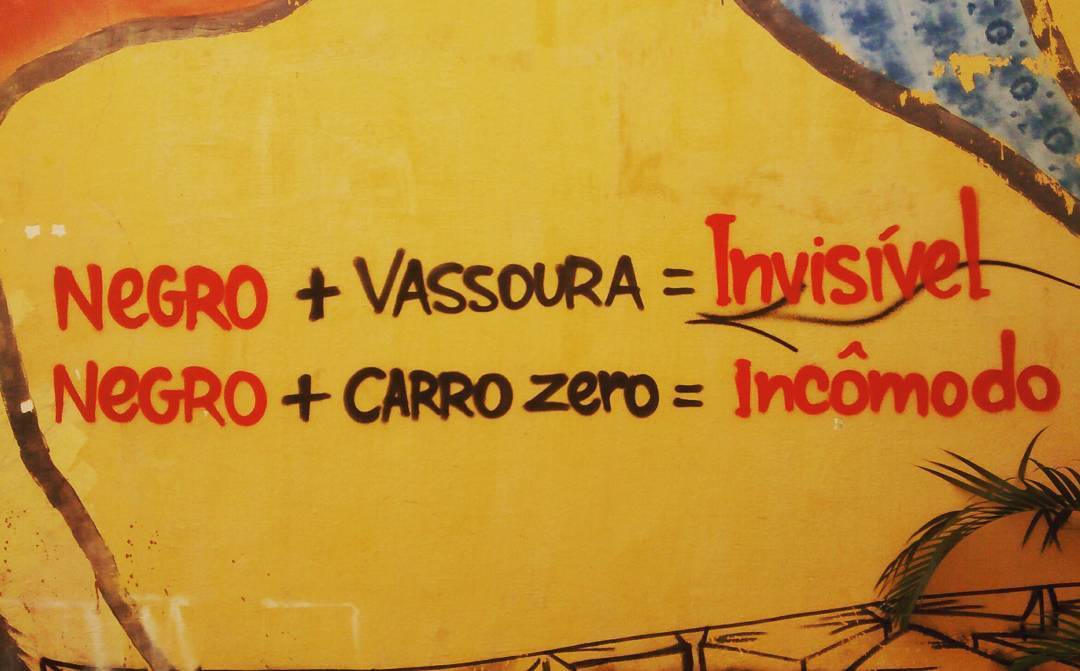 NeGRO + VASSOURA = Invisível
NeGRO + CARRO zero = Incômodo